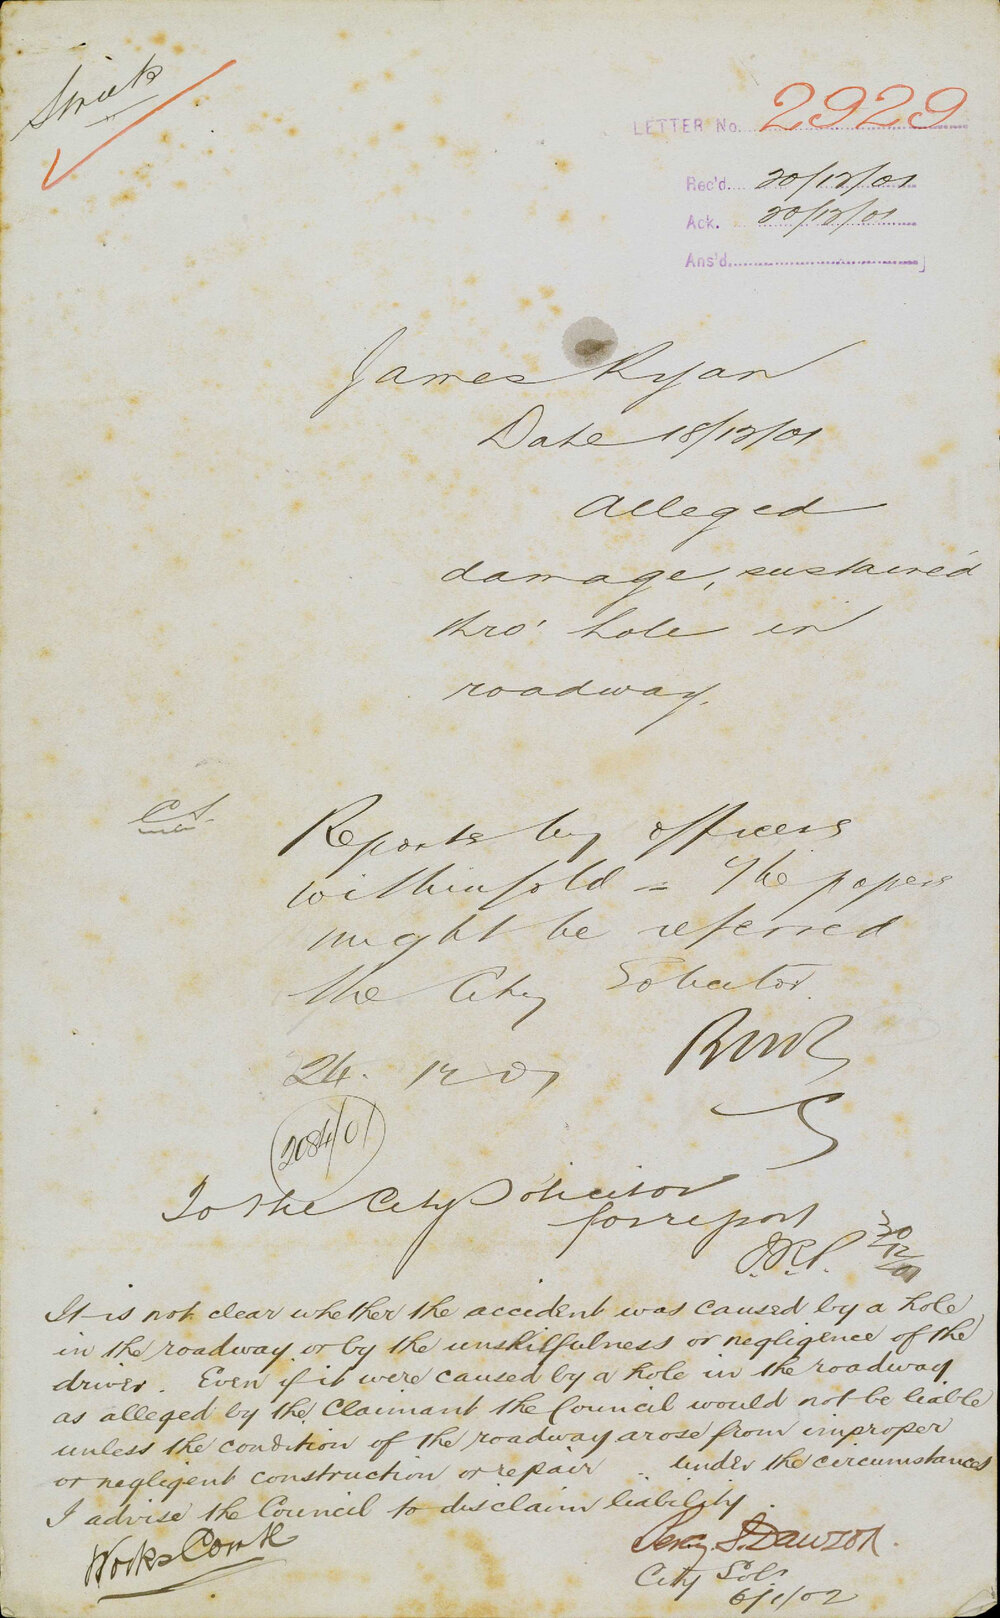 LETTER No. 2929
Rec'd. 20/12/01
Ack. 20/12/01
Ans'd.
James Ryan
Date 18/12/01
Alleged
damage, sustained
thro' hole in
roadway.
C S.
Reports by officers
withinfold = The papers
might be referred
the City Solicitor
24. 12 01
2084/01
To the City Solicitor
for report
J.R.P. 30/12/01
It is not clear whether the accident was caused by a hole
in the roadway or by the unskilfulness or negligence of the
driver. Even if it were caused by a hole in the roadway
as alleged by the Claimant the Council would not be liable
unless the condition of the roadway arose from improper
or negligent construction or repair .. under the circumstances
I advise the Council to disclaim liability.
Works Com
Percy S. Dawson.
City Solr
6/1/02